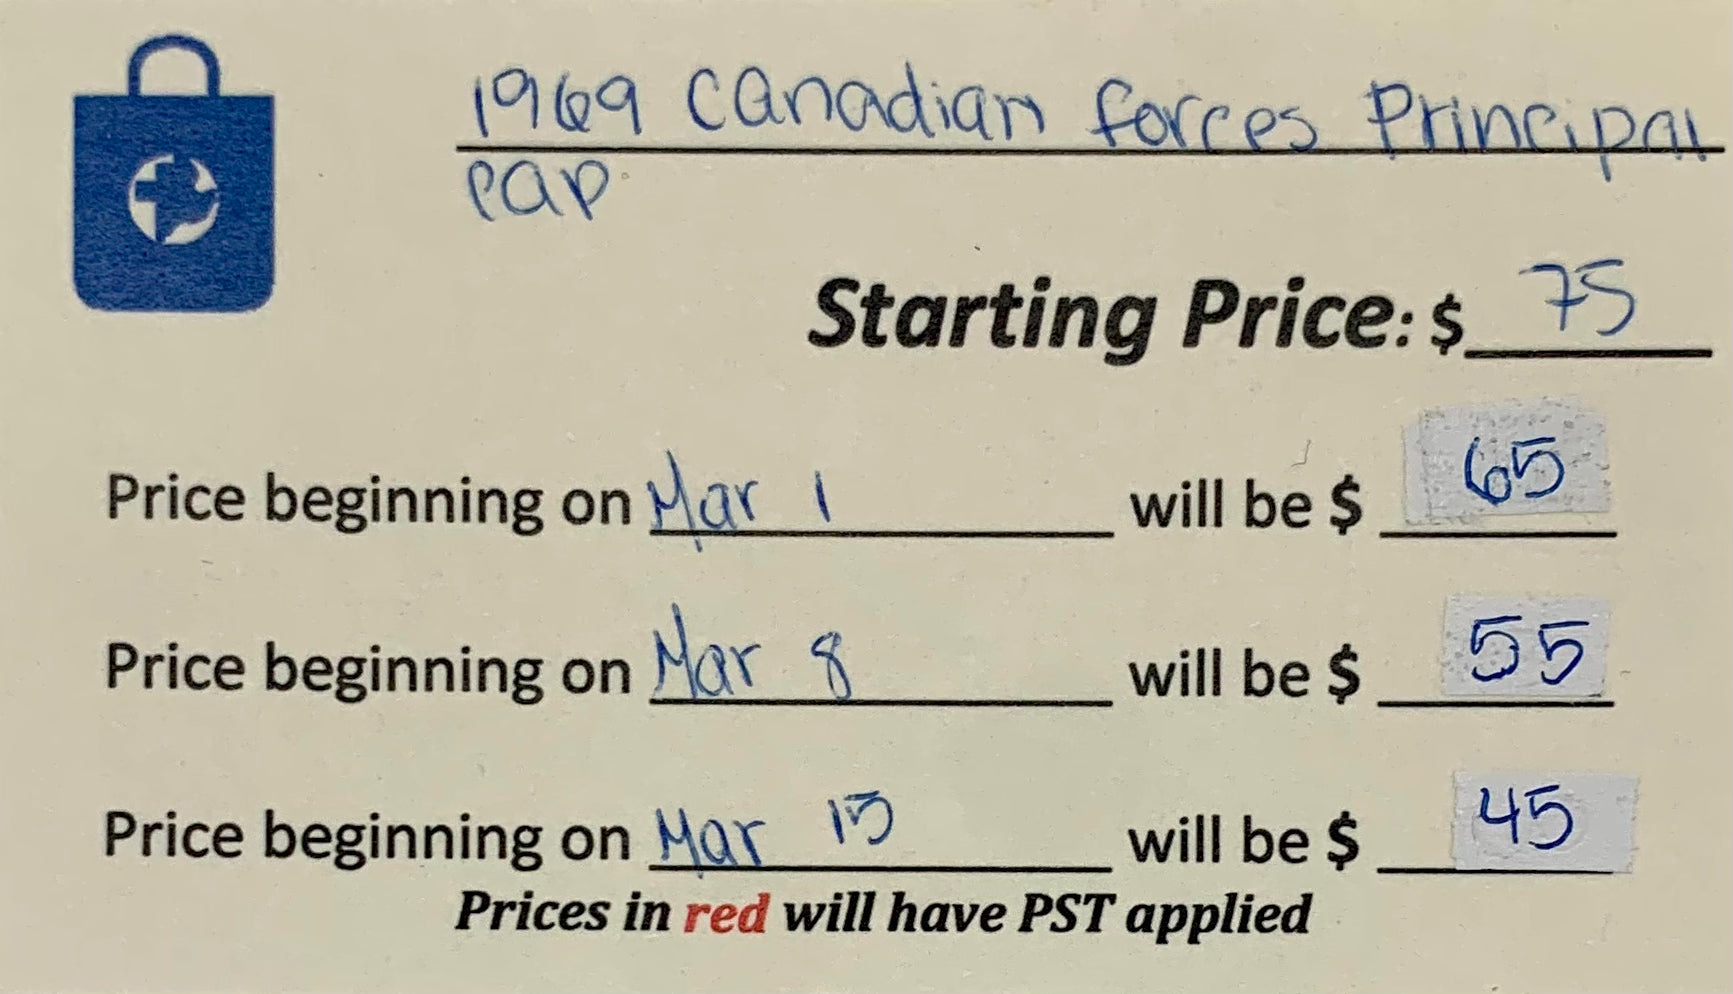 1969 Canadian forces Principal
cap
Starting Price: $ 75
Price beginning on Mar 1 will be $ 65
Price beginning on Mar 8 will be $ 55
Price beginning on Mar 15 will be $ 45
Prices in red will have PST applied